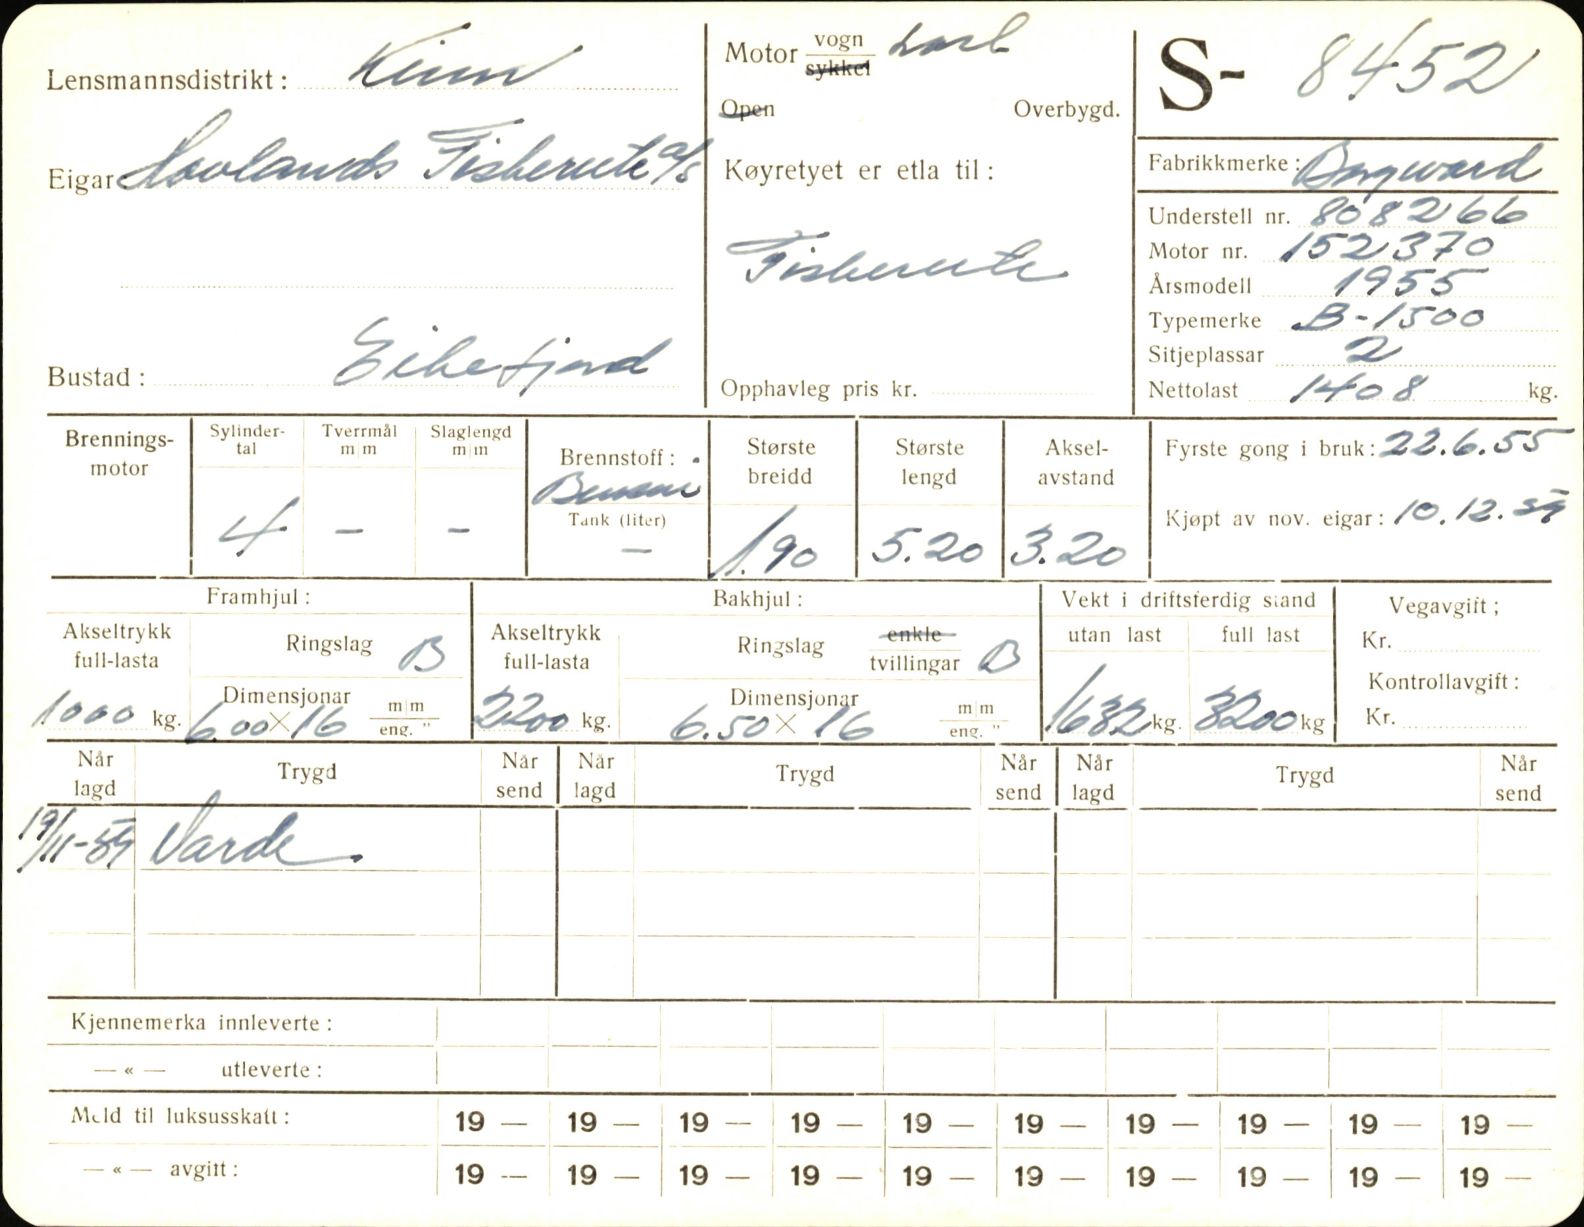 Lensmannsdistrikt: Kinn
Eigar Hovlands Fiskerute a/s
Bustad: Eikefjord
Motor vogn last
sykkel
Open Overbygd.
Køyretyet er etla til:
Fiskerute
Opphavleg pris kr.
S- 8452
Fabrikkmerke: Borgward
Understell nr. 8082266
Motor nr. 152370
Årsmodell 1955
Typemerke B-1500
Sitjeplassar 2
Nettolast 1408 kg.
Brennings-
motor
Sylinder-
tal
4
Tverrmål
m|m
—
Slaglengd
m|m
—
Brennstoff:
Bensin
Tank (liter)
—
Største
breidd
1.90
Største
lengd
5.20
Aksel-
avstand
3.20
Fyrste gong i bruk: 22.6.55
Kjøpt av nov. eigar: 10.12.59
Framhjul:
Akseltrykk
full-lasta
1000 kg.
Ringslag B
Dimensjonar
6.00 X 16 m|m
eng. "
Bakhjul:
Akseltrykk
full-lasta
2200 kg.
Ringslag enkle
tvillingar B
Dimensjonar
6.50 X 16 m|m
eng. "
Vekt i driftsferdig stand
utan last full last
1632 kg. 3200 kg
Vegavgift;
Kr.
Kontrollavgift:
Kr.
Når
lagd Trygd Når
send Når
lagd Trygd Når
send Når
lagd Trygd Når
send
19/11-59 Varde
Kjennemerka innleverte:
— « — utleverte:
Meld til luksusskatt: 19 — 19 — 19 — 19 — 19 — 19 — 19 — 19 — 19 — 19 —
— « — avgift: 19 — 19 — 19 — 19 — 19 — 19 — 19 — 19 — 19 — 19 —